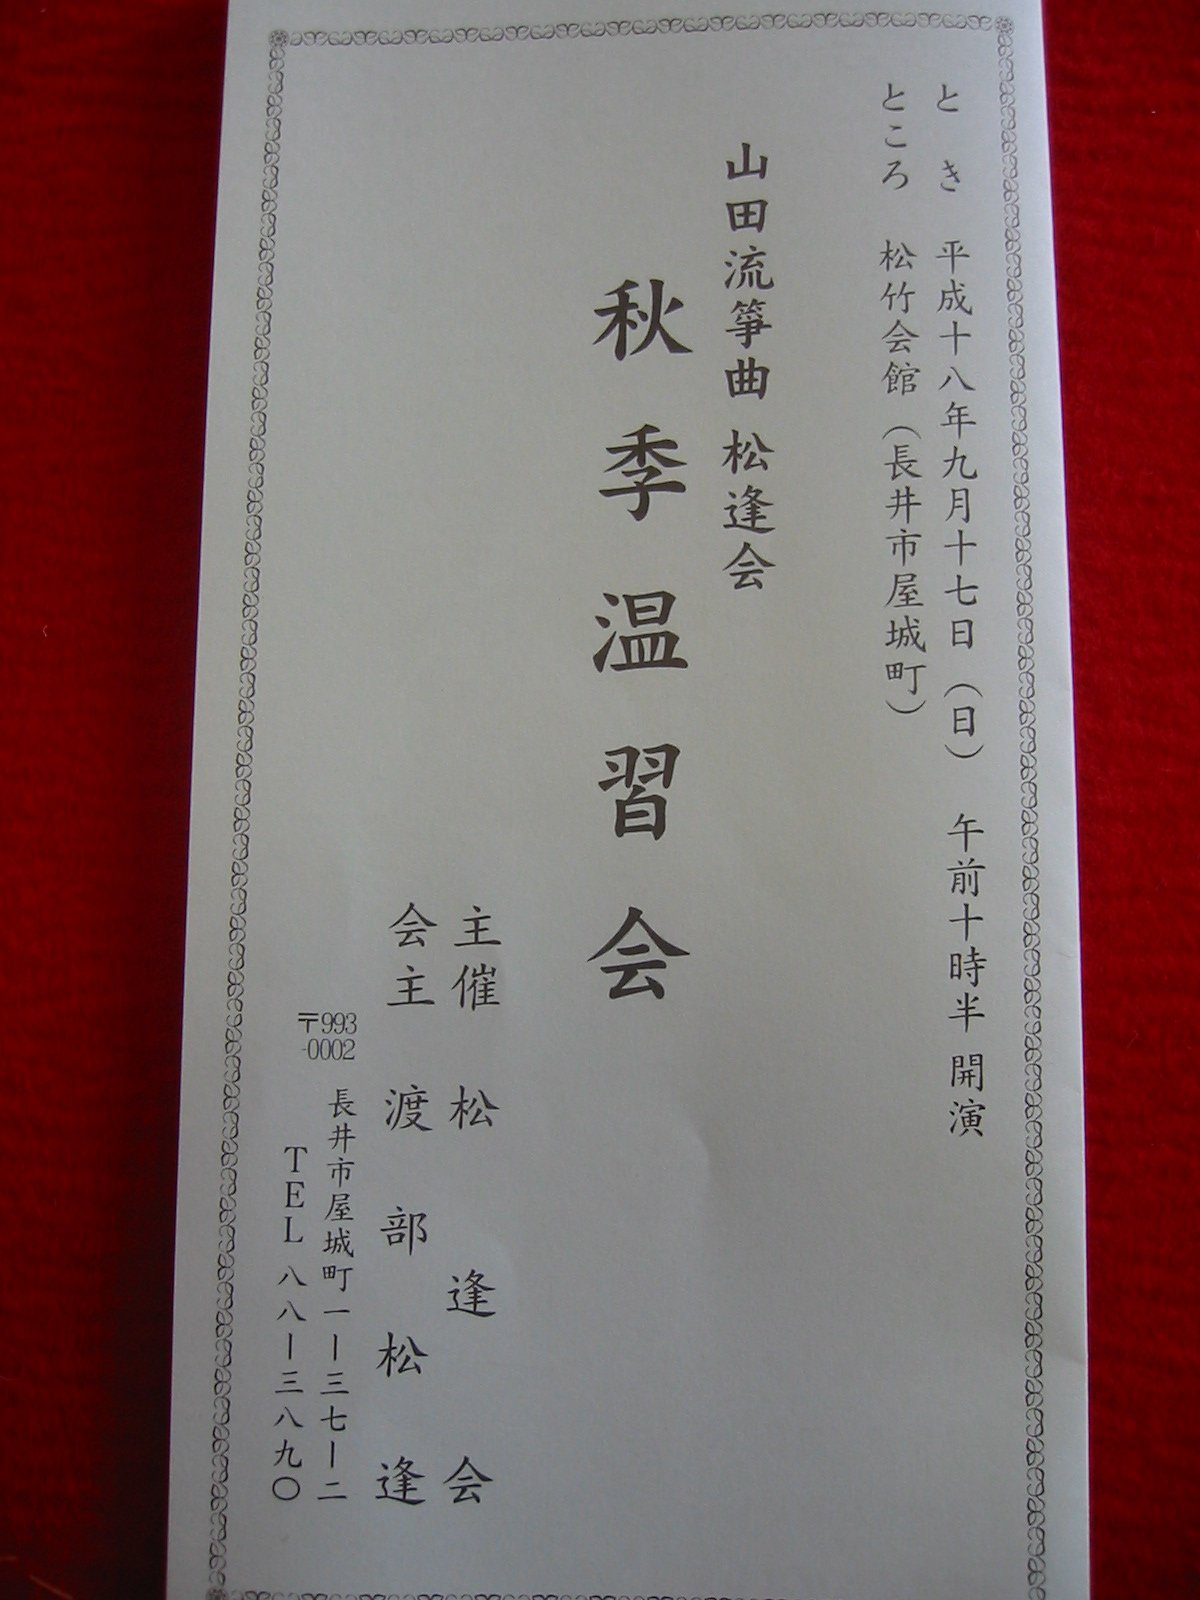 とき 平成十八年九月十七日（日） 午前十時半 開演
ところ 松竹会館（長井市屋城町）
山田流箏曲 松逢会
秋季温習会
主催 松逢会
会主 渡部松逢
〒993-0002
長井市屋城町一ー三七ー二
TEL 八八ー三八九〇